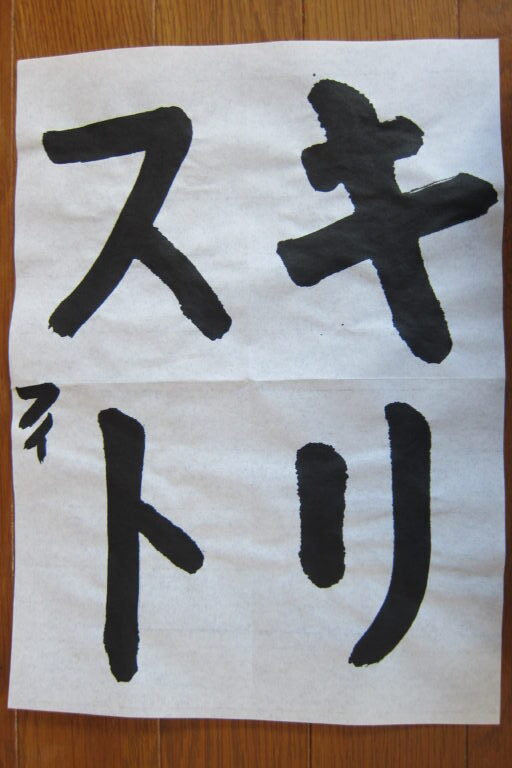 キリ
スト
マイ